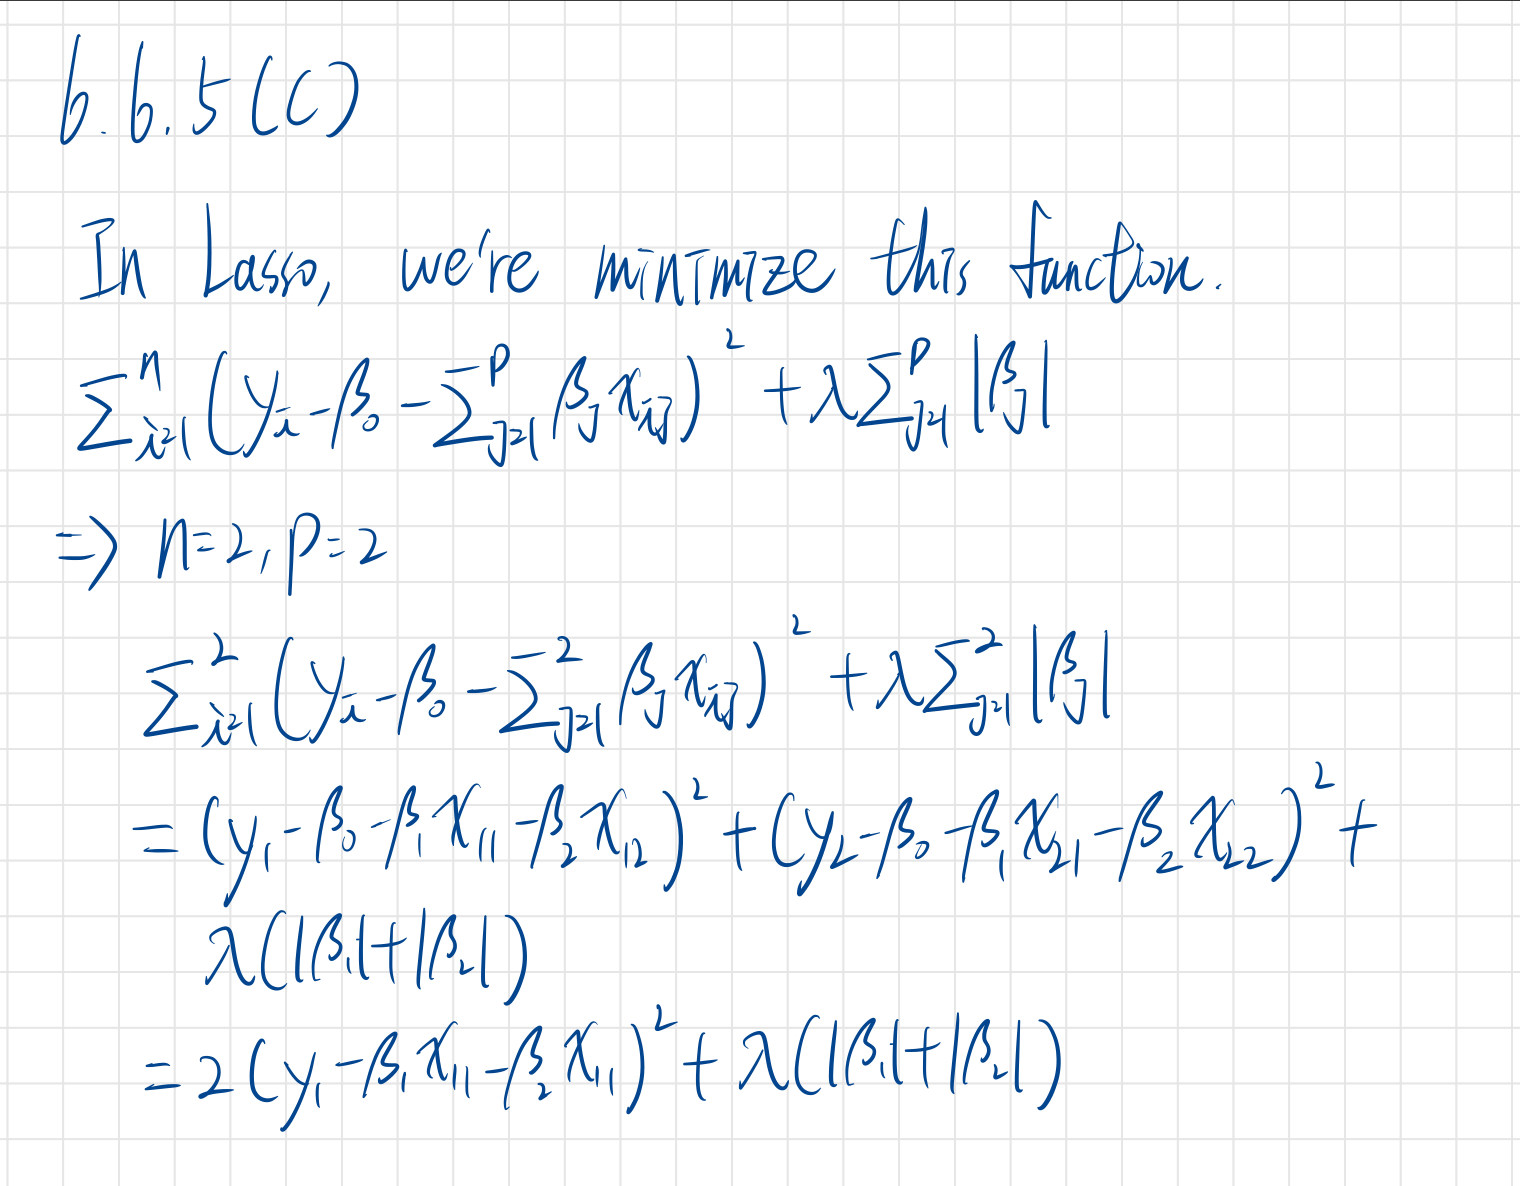 6.6.5(C)
In Lasso, we're minimize this function.
∑ᵢ₌₁ⁿ (yᵢ - β₀ - ∑ⱼ₌₁ᵖ βⱼ xᵢⱼ)² + λ∑ⱼ₌₁ᵖ |βⱼ|
=> n=2, p=2
∑ᵢ₌₁² (yᵢ - β₀ - ∑ⱼ₌₁² βⱼ xᵢⱼ)² + λ∑ⱼ₌₁² |βⱼ|
= (y₁ - β₀ - β₁ x₁₁ - β₂ x₁₂)² + (y₂ - β₀ - β₁ x₂₁ - β₂ x₂₂)² +
λ(|β₁| + |β₂|)
= 2(y₁ - β₁ x₁₁ - β₂ x₁₁)² + λ(|β₁| + |β₂|)